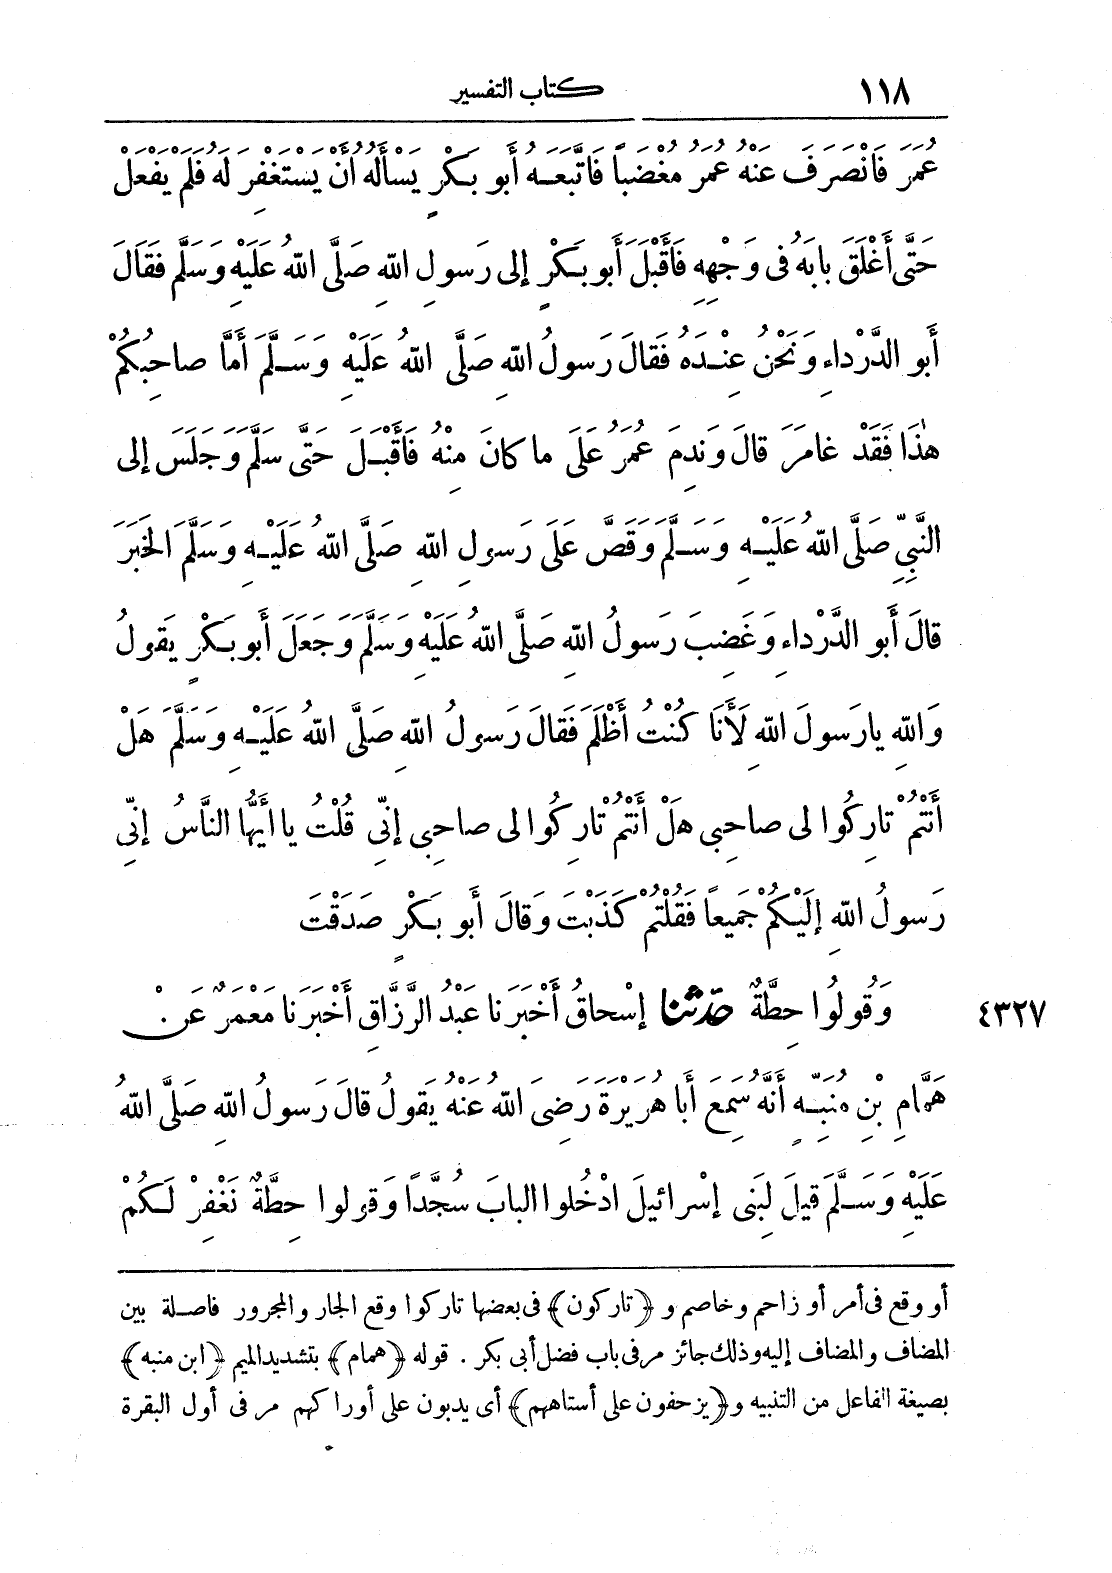 ١١٨ كتاب التفسير
عُمَرَ فَانْصَرَفَ عَنْهُ عُمَرُ مُغْضَبًا فَاتَّبَعَهُ أَبُو بَكْرٍ يَسْأَلُهُ أَنْ يَسْتَغْفِرَ لَهُ فَلَمْ يَفْعَلْ
حَتَّى أَغْلَقَ بابَهُ فى وَجْهِهِ فَأَقْبَلَ أَبو بَكْرٍ إلى رَسولِ اللهِ صَلَّى اللهُ عَلَيْهِ وَسَلَّم فَقَالَ
أَبو الدَّرْداءِ وَنَحْنُ عِنْدَهُ فَقالَ رَسولُ اللهِ صَلَّى اللهُ عَلَيْهِ وَسَلَّمَ أَمَّا صاحِبُكُمْ
هٰذَا فَقَدْ غامَرَ قالَ وَنَدِمَ عُمَرُ عَلَى ما كانَ مِنْهُ فَأَقْبَلَ حَتَّى سَلَّمَ وَجَلَسَ إلى
النَّبِيِّ صَلَّى اللهُ عَلَيْهِ وَسَلَّمَ وَقَصَّ عَلَى رَسولِ اللهِ صَلَّى اللهُ عَلَيْهِ وَسَلَّمَ الخَبَرَ
قالَ أَبو الدَّرْداءِ وَغَضِبَ رَسولُ اللهِ صَلَّى اللهُ عَلَيْهِ وَسَلَّمَ وَجَعَلَ أَبو بَكْرٍ يَقولُ
وَاللهِ يارَسولَ اللهِ لَأَنَا كُنْتُ أَظْلَمَ فَقالَ رَسولُ اللهِ صَلَّى اللهُ عَلَيْهِ وَسَلَّمَ هَلْ
أَنْتُمْ تارِكُوا لى صاحِبى هَلْ أَنْتُمْ تارِكُوا لى صاحِبِى إِنّى قُلْتُ يا أَيُّهَا النَّاسُ إِنّى
رَسولُ اللهِ إِلَيْكُمْ جَميعاً فَقُلْتُمْ كَذَبْتَ وَقالَ أَبو بَكْرٍ صَدَقْتَ
٤٣٢٧ وَقُولُوا حِطَّةٌ حَدَّثَنا إِسْحاقُ أَخْبَرَنا عَبْدُ الرَّزَّاقِ أَخْبَرَنا مَعْمَرٌ عَنْ
هَمَّامِ بْنِ مُنَبِّهٍ أَنَّهُ سَمِعَ أَبا هُرَيْرَةَ رَضِىَ اللهُ عَنْهُ يَقولُ قالَ رَسولُ اللهِ صَلَّى اللهُ
عَلَيْهِ وَسَلَّمَ قيلَ لِبَنى إِسْرائيلَ ادْخُلوا البابَ سُجَّدًا وَقولوا حِطَّةٌ نَغْفِرْ لَكُمْ
أو وقع فى أمر أو زاحم وخاصم و ﴿تاركون﴾ فى بعضها تاركوا وقع الجار والمجرور فاصلة بين
المضاف والمضاف إليه وذلك جائز مر فى باب فضل أبى بكر . قوله ﴿همام﴾ بتشديد الميم ﴿ابن منبه﴾
بصيغة الفاعل من التنبيه و﴿يزحفون على أستاههم﴾ أى يدبون على أوراكهم مر فى أول البقرة